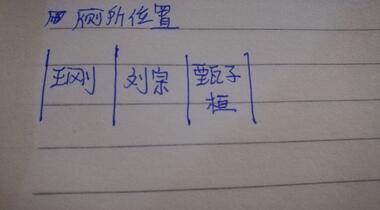 厕所位置
王刚 刘宗 甄子
桓